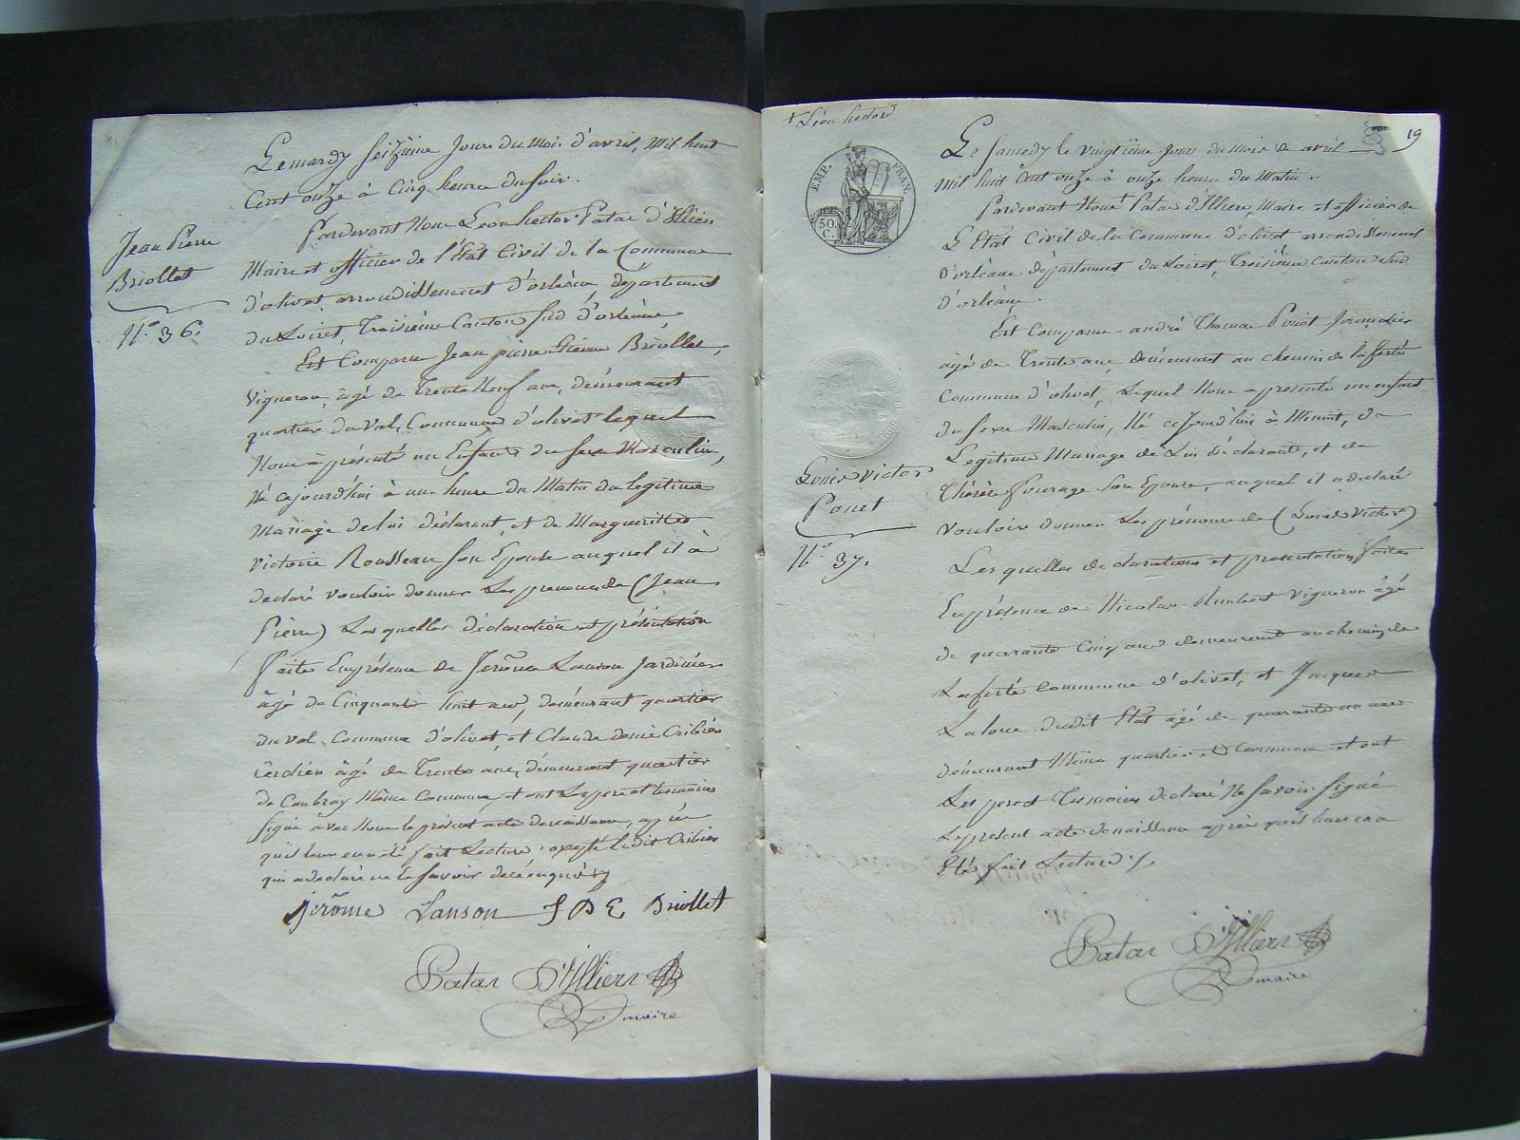 Le mardy seizième jour du mois d'avril, mil huit
Cent onze à Cinq heure du soir.
Pardevant Nous Léon hector Patas d'Illiers
Maire et officier de l'Etat Civil de la Commune
d'olivet arrondissement d'orléans, département
du Loiret, Troisième Canton Sud d'orléans
Est Comparu Jean pierre Etienne Briollet,
Vigneron, âgé de Trente Neuf ans, demeurant
quartier du Val, Commune d'olivet lequel
Nous à présenté un Enfant du sexe Masculin,
Né cejourd'hui à une heure du Matin du legitime
Mariage de lui déclarant et de Margueritte
Victoire Rousseau son Epouse auquel il à
declaré vouloir donner les prenoms de (Jean
Pierre) Lesquelles déclaration et présentation
faites En présence de Jerôme Lanson Jardinier
âgé de Cinquante huit ans, demeurant quartier
du val, Commune d'olivet, et Claude denis
âgé de Trente ans, demeurant quartier
de Coubray Même Commune, et ont Les pere et témoins
signé avec Nous le présent acte de naissance, après
qu'il leur en a été fait Lecture, excepté Ledit
qui a declaré ne le savoir de ce enquis
Jean Pierre
Briollet
N.° 36.
jérôme Lanson J P E Briollet
Patas D'Illiers
maire
+ Léon hector
19
EMP. FRAN.
50 C.
Le Samedy le vingtième jour du mois de avril
Mil huit Cent onze à onze heure du Matin.
Pardevant Nous + Patas d'Illiers, Maire et officier de
L'Etat Civil de la Commune d'olivet arrondissement
D'orléans département du Loiret, Troisième Canton Sud
d'orléans.
Est Comparu andré Thomas Pouet Journalier
âgé de Trente ans, demeurant au chemin de la ferté
Commune d'olivet, Lequel Nous a présenté un enfant
du sexe Masculin, Né cejourd'hui à Minuit, du
Legitime Mariage de Lui déclarant, et de
Thérèse fourage son Epouse, auquel il a déclaré
vouloir donner Les prénoms de (Louis Victor)
Lesquelles declarations et presentation faites
En présence de Nicolas Vigneron âgé
de quarante Cinq ans demeurant au chemin de
La ferté Commune d'olivet, et Jacques
dudit Etat âgé de quarante un ans
demeurant Même quartier et Commune et ont
Les pere et Temoins declaré Ne savoir signé
Le present acte de naissance après qu'il leur en a
Eté fait Lecture ./.
Louis Victor
Pouet
N.° 37.
Patas D'Illiers
maire